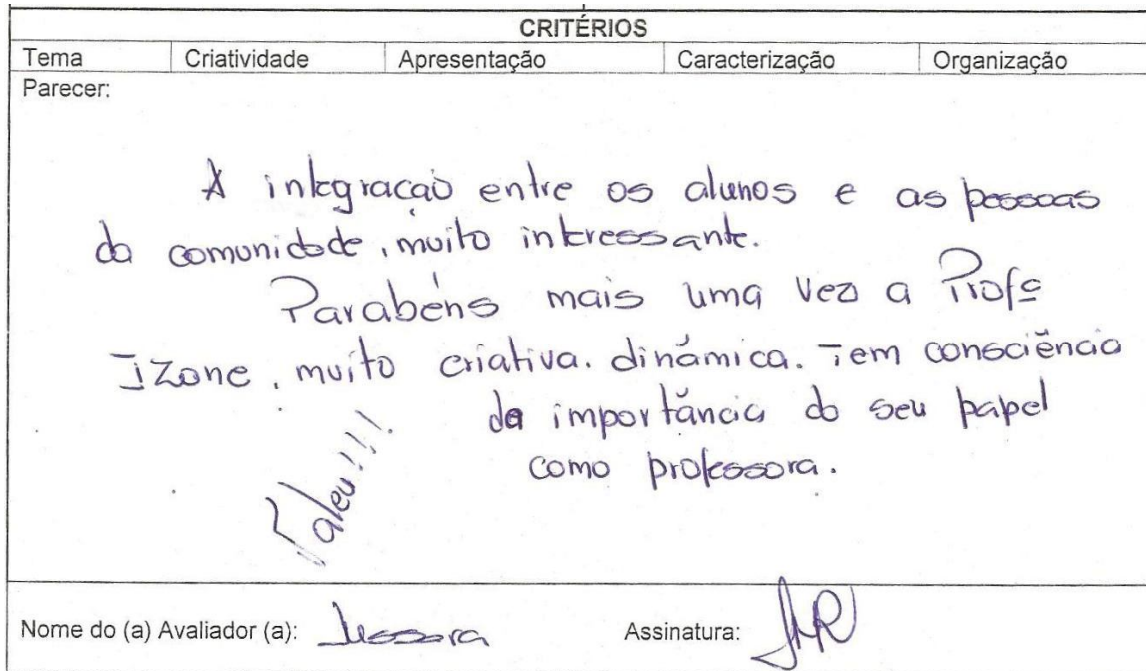 CRITÉRIOS
Tema Criatividade Apresentação Caracterização Organização
Parecer:
A integração entre os alunos e as pessoas
da comunidade, muito interessante.
Parabéns mais uma vez a Profª
Izone, muito criativa. dinâmica. Tem consciência
da importância do seu papel
como professora.
Valeu!!!
Nome do (a) Avaliador (a): Assinatura: